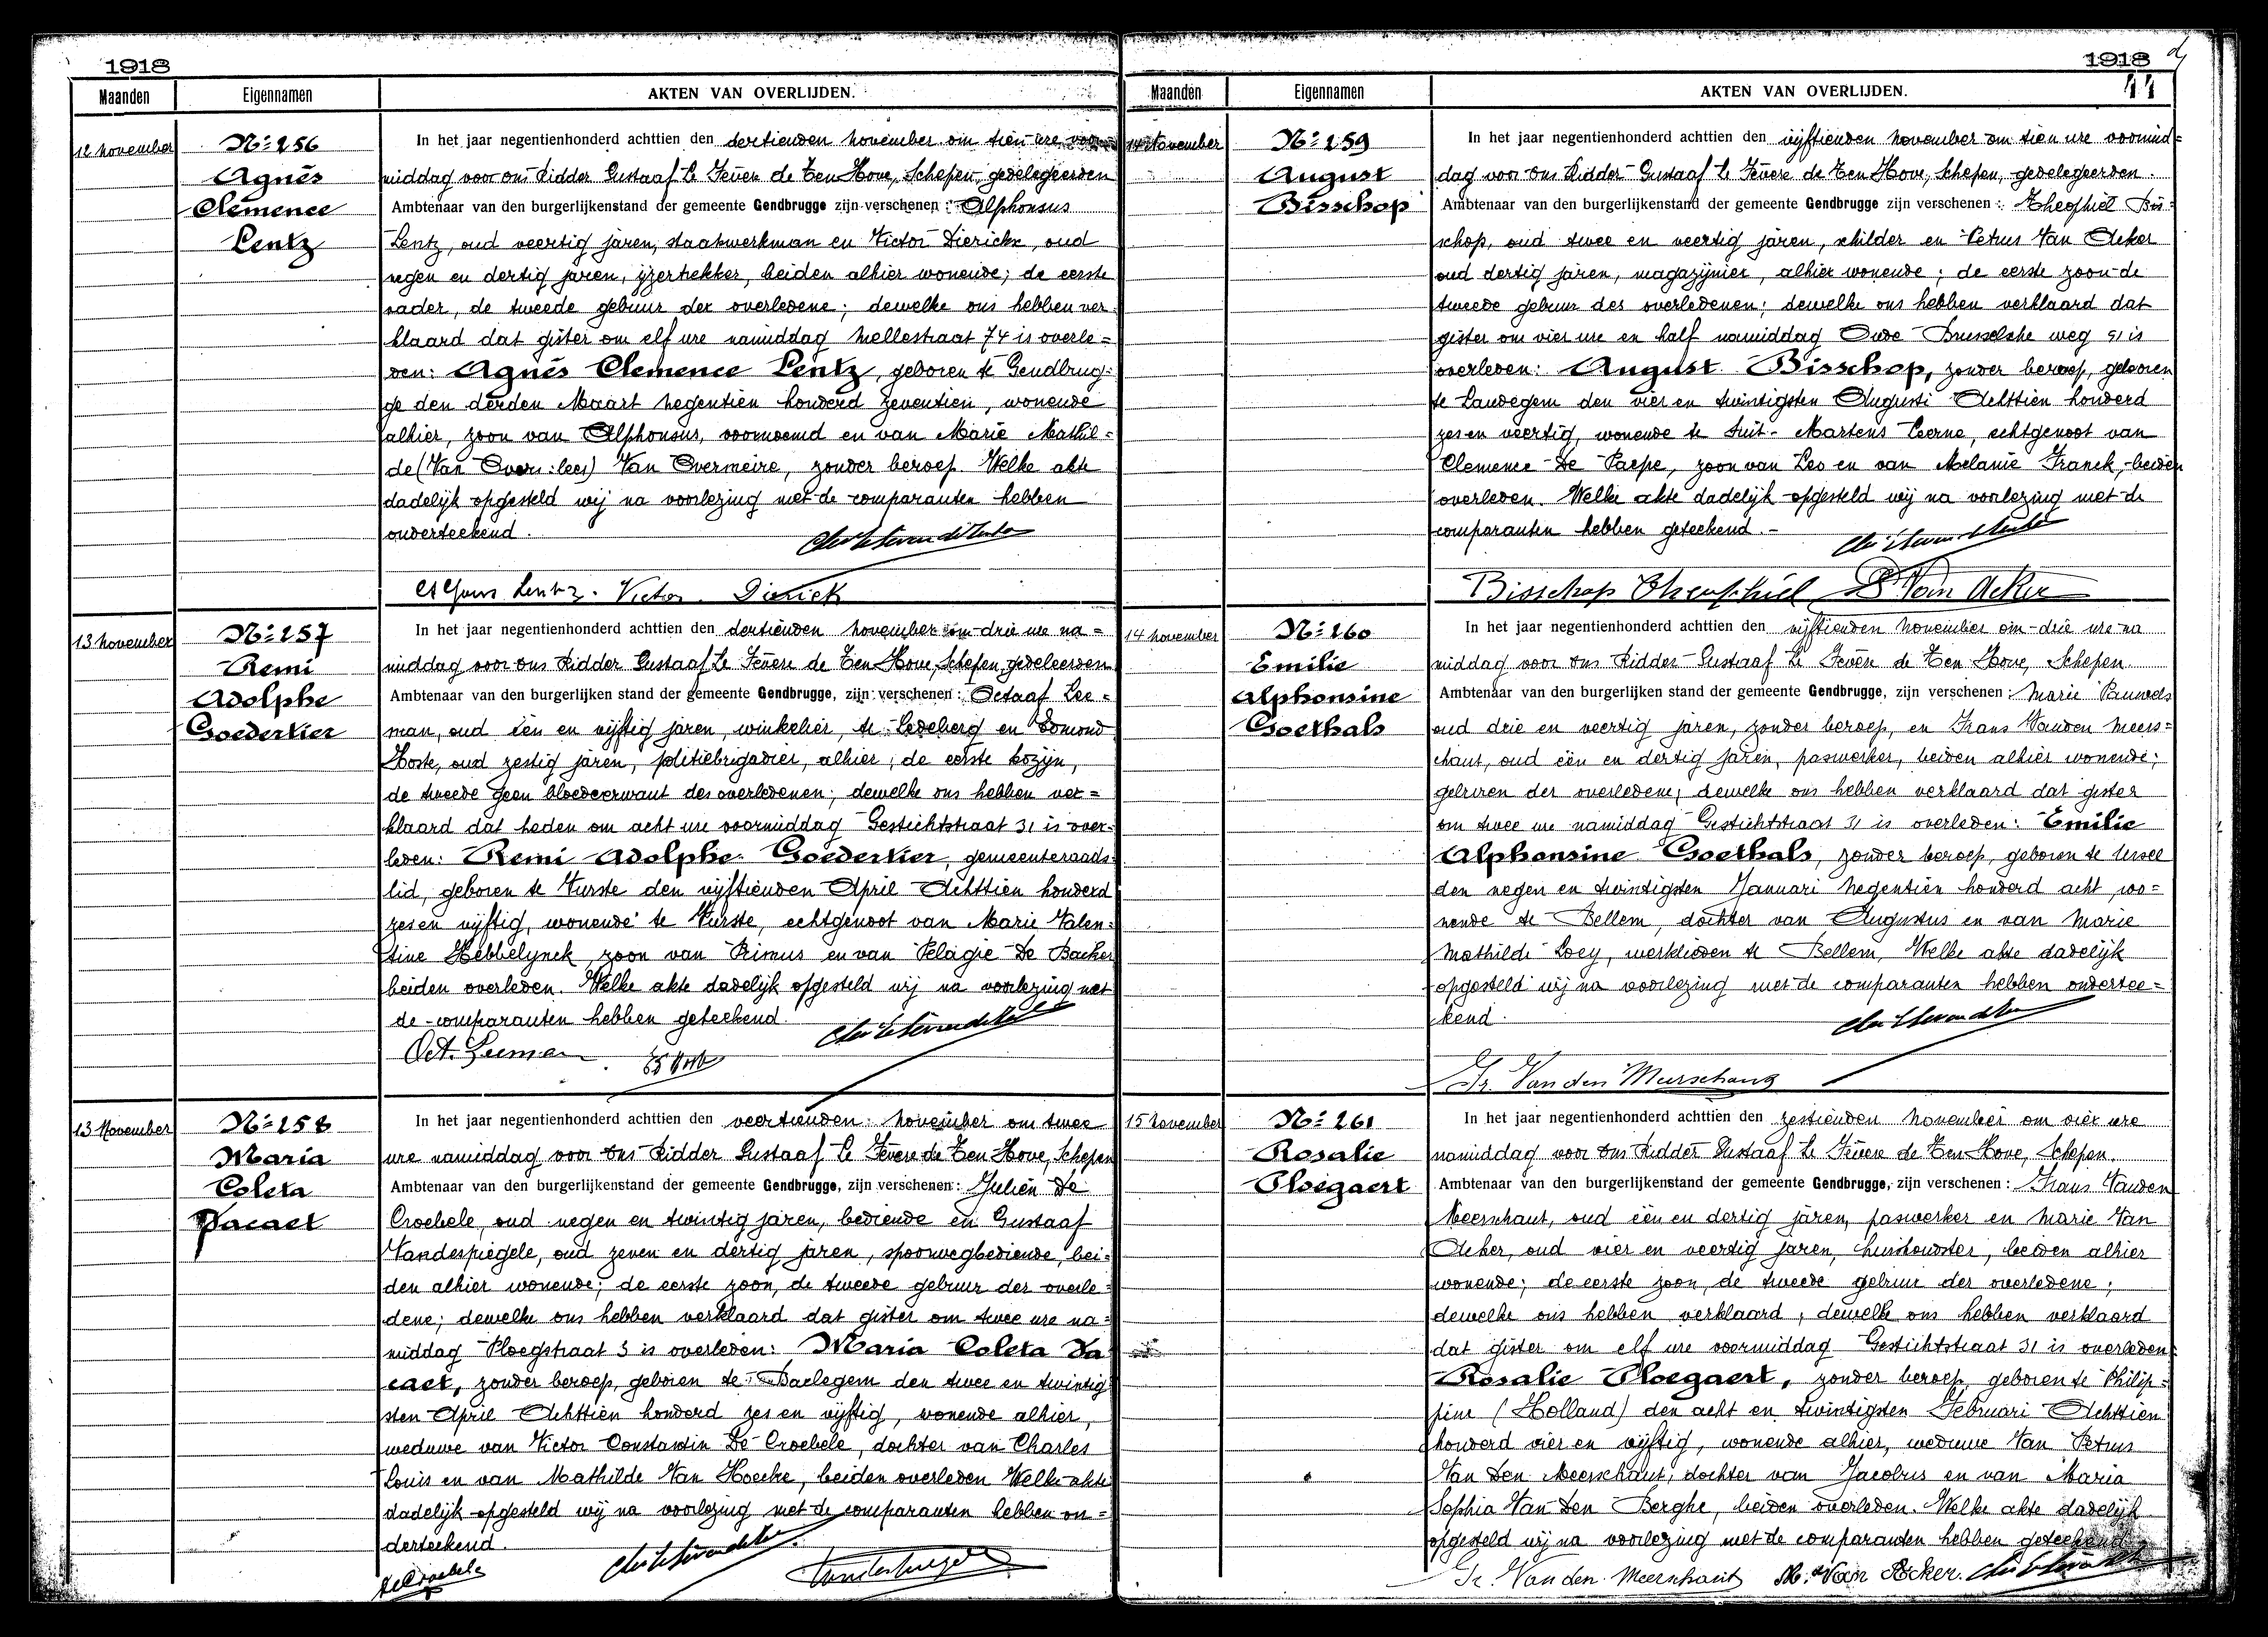 1918
Maanden
Eigennamen
AKTEN VAN OVERLIJDEN.
12 november
No 256
Agnès
Clemence
Lentz
In het jaar negentienhonderd achttien den dertienden november om tien ure voor
middag voor ons Ridder Gustaaf Le Fèvere de Ten Hove, Schepen, gedelegeerden
Ambtenaar van den burgerlijkenstand der gemeente Gendbrugge zijn verschenen : Alphonsus
Lentz, oud veertig jaren, staatwerkman en Victor Dierickx, oud
negen en dertig jaren, ijzertrekker, beiden alhier wonende; de eerste
vader, de tweede gebuur der overledene; dewelke ons hebben ver
klaard dat gister om elf ure namiddag Mellestraat 74 is overle=
den: Agnès Clemence Lentz, geboren te Gendbrug=
ge den derden Maart negentien honderd zeventien, wonende
alhier, zoon van Alphonsus, voornoemd en van Marie Mathil=
de (Van Overs: lees) Van Overmeire, zonder beroep. Welke akte
dadelijk opgesteld wij na voorlezing met de comparanten hebben
onderteekend.
Alfons Lentz. Victor Dierick
13 november
No 257
Remi
Adolphe
Goedertier
In het jaar negentienhonderd achttien den dertienden november om drie ure na=
middag voor ons Ridder Gustaaf Le Fèvere de Ten Hove, Schepen, gedeleerden
Ambtenaar van den burgerlijken stand der gemeente Gendbrugge, zijn verschenen : Octaaf Lee=
man, oud één en vijftig jaren, winkelier, te Ledeberg en Edmond
Hoste, oud zestig jaren, politiebrigadier, alhier; de eerste kozijn,
de tweede geen bloedverwant des overledenen; dewelke ons hebben ver=
klaard dat heden om acht ure voormiddag Gestichtstraat 31 is over=
leden: Remi Adolphe Goedertier, gemeenteraads=
lid, geboren te Vurste den vijftienden April Achttien honderd
zes en vijftig, wonende te Vurste, echtgenoot van Marie Valen=
tine Hebbelynck, zoon van Primus en van Pelagie De Backer
beiden overleden. Welke akte dadelijk opgesteld wij na voorlezing met
de comparanten hebben geteekend.
Oct. Leeman
13 November
No 258
Maria
Coleta
Dacaet
In het jaar negentienhonderd achttien den veertienden november om twee
ure namiddag voor ons Ridder Gustaaf Le Fèvere de Ten Hove, Schepen
Ambtenaar van den burgerlijkenstand der gemeente Gendbrugge, zijn verschenen : Julien De
Croebele, oud negen en twintig jaren, bediende en Gustaaf
Vandespiegele, oud zeven en dertig jaren, spoorwegbediende, bei=
den alhier wonende; de eerste zoon, de tweede gebuur der overle=
dene; dewelke ons hebben verklaard dat gister om twee ure na=
middag Ploegstraat 3 is overleden: Maria Coleta Da
caet, zonder beroep, geboren te Baelegem den twee en twintig
sten April Achttien honderd zes en vijftig, wonende alhier,
weduwe van Victor Constantin De Croebele, dochter van Charles
Louis en van Mathilde Van Hoecke, beiden overleden Welke akte
dadelijk opgesteld wij na voorlezing met de comparanten hebben on=
derteekend.
1918
44
Maanden
Eigennamen
AKTEN VAN OVERLIJDEN.
14 November
No 259
August
Bisschop
In het jaar negentienhonderd achttien den vijftienden november om tien ure voormid=
dag voor ons Ridder Gustaaf Le Fèvere de Ten Hove, Schepen, gedelegeerden.
Ambtenaar van den burgerlijkenstand der gemeente Gendbrugge zijn verschenen : Theophiel Bis=
schop, oud twee en veertig jaren, schilder en Petrus Van Acker
oud dertig jaren, magazijnier, alhier wonende; de eerste zoon de
tweede gebuur des overledenen; dewelke ons hebben verklaard dat
gister om vier ure en half namiddag Oude Brusselsche weg 91 is
overleden: August Bisschop, zonder beroep, geboren
te Landegem den vier en twintigsten Augusti Achttien honderd
zes en veertig, wonende te Suit-Martens Leerne, echtgenoot van
Clemence De Paepe, zoon van Leo en van Melanie Franck, beiden
overleden. Welke akte dadelijk opgesteld wij na voorlezing met de
comparanten hebben geteekend.-
Bisschop Theophiel P. Van Acker
14 november
No 260
Emilie
Alphonsine
Goethals
In het jaar negentienhonderd achttien den vijftienden november om drie ure na
middag voor ons Ridder Gustaaf Le Fèvere de Ten Hove, Schepen.
Ambtenaar van den burgerlijken stand der gemeente Gendbrugge, zijn verschenen : Marie Pauwels
oud drie en veertig jaren, zonder beroep, en Frans Vanden Meers=
chaut, oud één en dertig jaren, paswerker, beiden alhier wonende;
geburen der overledene; dewelke ons hebben verklaard dat gister
om twee ure namiddag Gestichtstraat 31 is overleden: Emilie
Alphonsine Goethals, zonder beroep, geboren te Ursel
den negen en twintigsten Januari negentien honderd acht, wo=
nende te Bellem, dochter van Augustus en van Marie
Mathilde Loey, werklieden te Bellem, Welke akte dadelijk
opgesteld wij na voorlezing met de comparanten hebben ondertee=
kend.
Fr. Van den Meerschaut
15 november
No 261
Rosalie
Ploegaert
In het jaar negentienhonderd achttien den zestienden november om vier ure
namiddag voor ons Ridder Gustaaf Le Fèvere de Ten Hove, Schepen.
Ambtenaar van den burgerlijkenstand der gemeente Gendbrugge, zijn verschenen : Frans Vanden
Meerschaut, oud één en dertig jaren, paswerker en Marie Van
Acker, oud vier en veertig jaren, huishoudster, beiden alhier
wonende; de eerste zoon, de tweede gebuur der overledene;
dewelke ons hebben verklaard; dewelke ons hebben verklaard
dat gister om elf ure voormiddag Gestichtstraat 31 is overleden:
Rosalie Ploegaert, zonder beroep, geboren te Philip=
pine (Holland) den acht en twintigsten Februari Achttien
honderd vier en vijftig, wonende alhier, weduwe Van Petrus
Van Den Meerschaut, dochter van Jacobus en van Maria
Sophia Van Den Berghe, beiden overleden. Welke akte dadelijk
opgesteld wij na voorlezing met de comparanten hebben geteekend
Fr. Van den Meerschaut M. Van Acker.